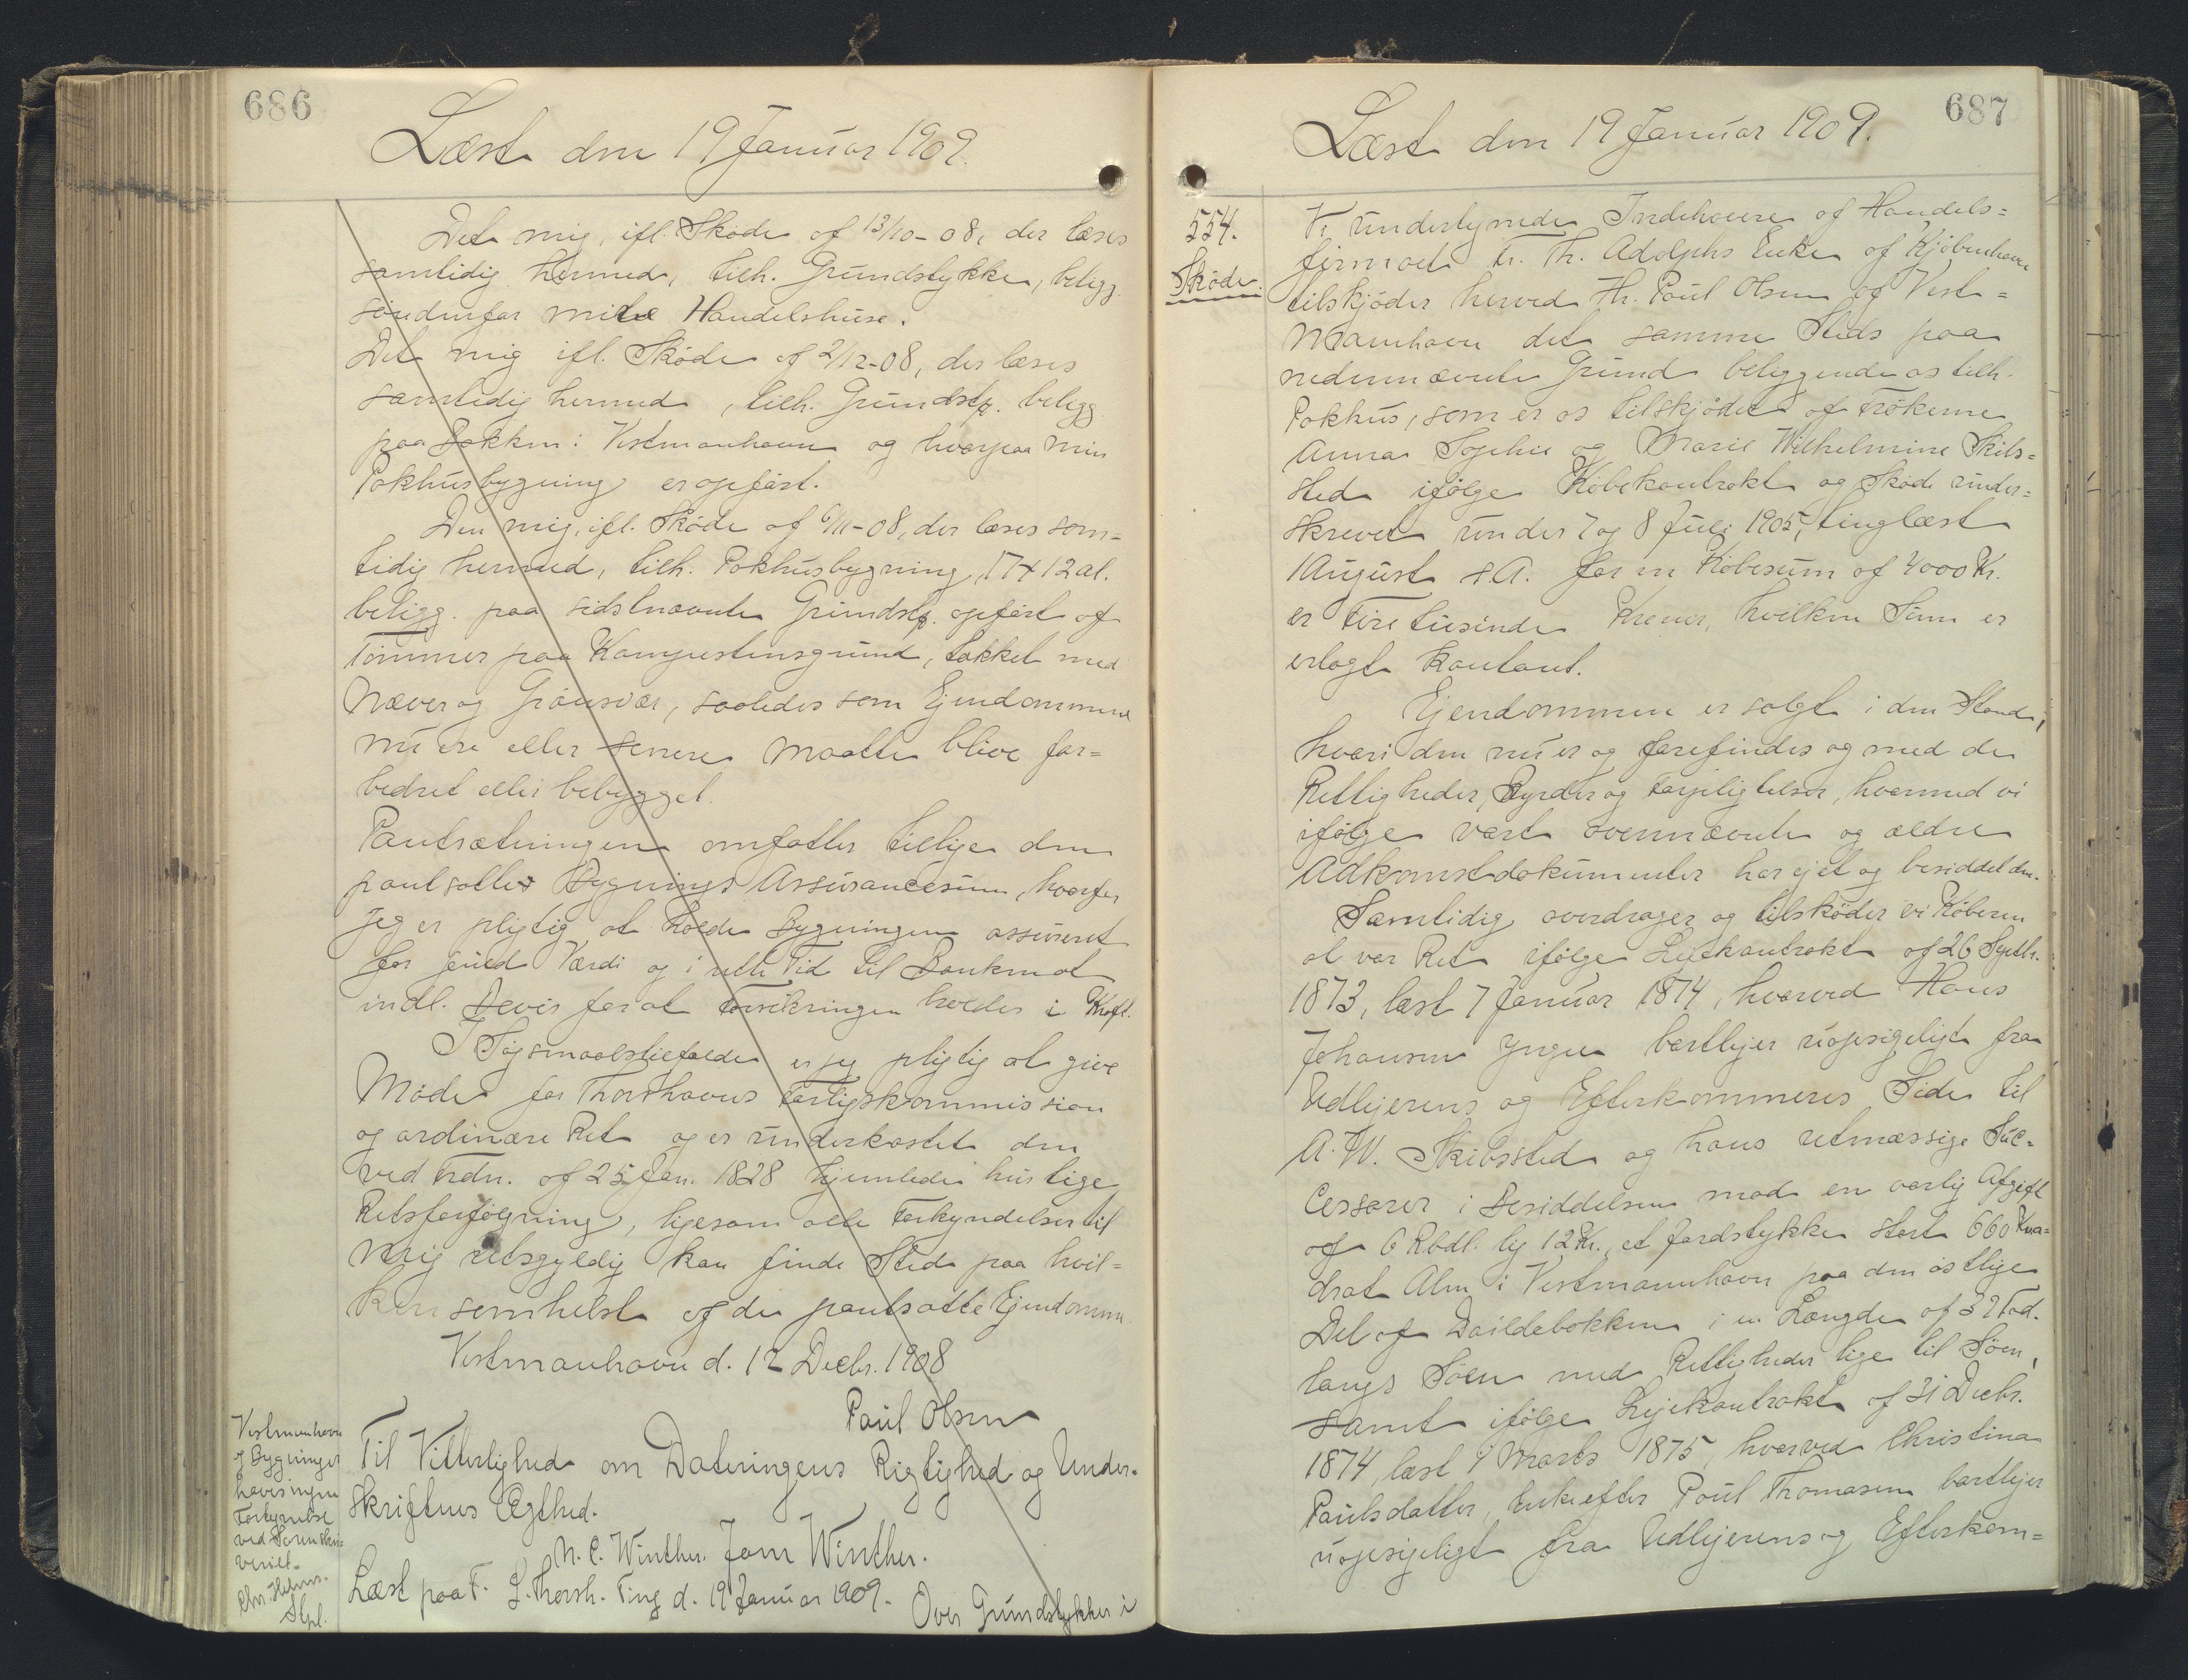 686
Læst den 19 Januar 1909.
Det mig, ifl. Skøde af 13/10-08, der læses
samtidig hermed, tilh. Grundstykke, beligg.
søndenfor mine Handelshuse.
Det mig ifl. Skøde af 2/12-08, der læses
samtidig hermed, tilh. Grundstk. beligg.
paa Bakken i Vestmanhavn og hvorpaa min
Pakhusbygning er opført.
Den mig, ifl. Skøde af 6/11-08, der læses sam-
tidig hermed, tilh. Pakhusbygning, 17 x 12 al.
beligg. paa sidstnævnte Grundstk. opført af
Tømmer paa Kampestensgrund, takket med
Næver og Grønsvær, saaledes som Ejendommene
nu ere eller senere maatte blive for-
bedret eller bebygget.
Pantsætningen omfatter tillige den
pantsatte Bygnings Assurancesum, hvorfor
jeg er pligtig at holde Bygningen assureret
for fuld Værdi og i rette Tid til Banken at
indl. Bevis for at Forsikringen holdes i Kraft.
I Søgsmaalstilfælde er jeg pligtig at give
Møde for Thorshavns Forligskommission
og ordinære Ret og er underkastet den
ved Frdn. af 25 Jan. 1828 hjemlede hurtige
Retsforfølgning, ligesom alle Forkyndelser til
mig retsgyldig kan finde Sted paa hvil-
ken somhelst af de pantsatte Ejendomme.
Vestmanhavn d. 12 Decbr. 1908
Paul Olsen
Til Vitterlighed om Dateringens Rigtighed og Under-
skriftens Ægthed.
N. C. Winther. Joen Winther.
Læst paa F. L. Thorsh. Ting d. 19 Januar 1909.
Over Grundstykker i
Vestmanhavn
og Bygninger
haves ingen
Forkyndelse
ved Sorenskri-
veriet.
Chr. Helms.
Stpl.
687
Læst den 19 Januar 1909.
554.
Skøde.
Vi undertegnede Indehavere af Handels-
firmaet Fr. Th. Adolphs Enke af Kjøbenhavn
tilskjøder herved Hr. Paul Olsen af Vest-
manhavn det samme Steds paa
nedennævnte Grund beliggende os tilh.
Pakhus, som er os tilskjødet af Frøknerne
Anna Sophie og Marie Wilhelmine Skibs-
sted ifølge Købekontrakt og Skøde under-
skrevet under 7 og 8 Juli 1905, tinglæst
1 August s.A. for en Købesum af 4000 Kr.
er Fire tusinde Kroner, hvilken Sum er
erlagt kontant.
Ejendommen er solgt i den Stand,
hvori den nu er og forefindes og med de
Rettigheder, Byrder og Forpligtelser, hvormed vi
ifølge vort ovennævnte og ældre
Adkomstdokumenter har ejet og besiddet den.
Samtidig overdrager og tilskøder vi Køberen
al vor Ret ifølge Lejekontrakt af 26 Septbr.
1873, læst 7 Januar 1874, hvorved Hans
Johansen Ynger bortlejer uopsigeligt fra
Udlejerens og Efterkommeres Side til
A. W. Skibssted og hans retmæssige Suc-
cessorer i Besiddelsen mod en aarlig Afgift
af 6 Rbdl. lig 12 Kr., et Jordstykke stort 660 Kva-
drat Alen i Vestmannhavn paa den østlige
Del af Daildebakken i en Længde af 39 Fod.
langs Søen med Rettigheder lige til Søen,
samt ifølge Lejekontrakt af 31 Decbr.
1874, læst 9 Marts 1875, hvorved Christina
Paulsdatter, Enke efter Poul Thomasen bortlejer
uopsigeligt fra Udlejerens og Efterkom-